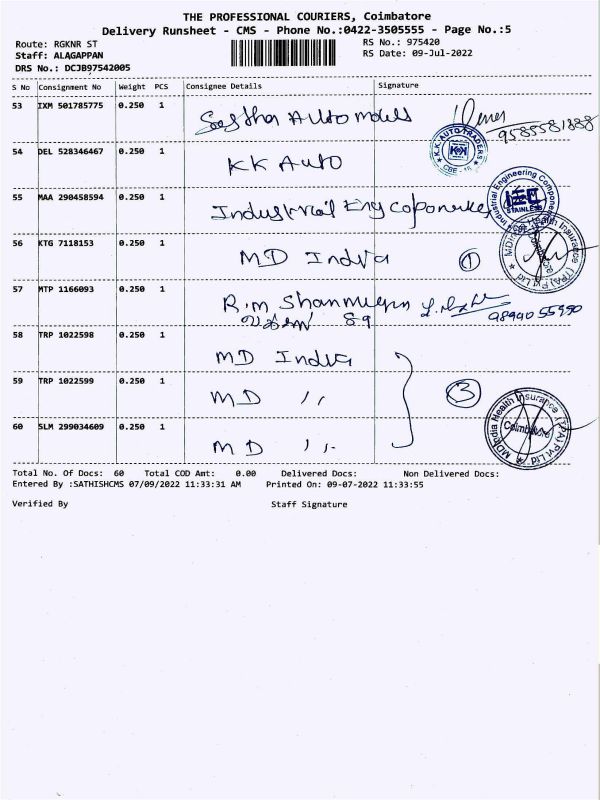 THE PROFESSIONAL COURIERS, Coimbatore
Delivery Runsheet - CMS - Phone No.:0422-3505555 - Page No.:5
Route: RGKNR ST
RS No.: 975420
Staff: ALAGAPPAN
RS Date: 09-Jul-2022
DRS No.: DCJB97542005
S No Consignment No Weight PCS Consignee Details Signature
53 IXM 501785775 0.250 1 Sastha Automobiles
9585581888
54 DEL 528346467 0.250 1 KK Auto
K.K. AUTO TRADERS CBE - 18
55 MAA 290458594 0.250 1 Industrial Eng
Industrial Engineering Components STAINLESS
56 KTG 7118153 0.250 1 MD India 1
MDIndia Health Insurance (TPA) Pvt Ltd
57 MTP 1166093 0.250 1 R.M Shanmugam
89 98940 55990
58 TRP 1022598 0.250 1 MD India
59 TRP 1022599 0.250 1 MD ,, 3
60 SLM 299034609 0.250 1 MD ,,
MDIndia Health Insurance (TPA) Pvt Ltd Coimbatore
Total No. Of Docs: 60 Total COD Amt: 0.00 Delivered Docs: Non Delivered Docs:
Entered By :SATHISHCMS 07/09/2022 11:33:31 AM Printed On: 09-07-2022 11:33:55
Verified By Staff Signature